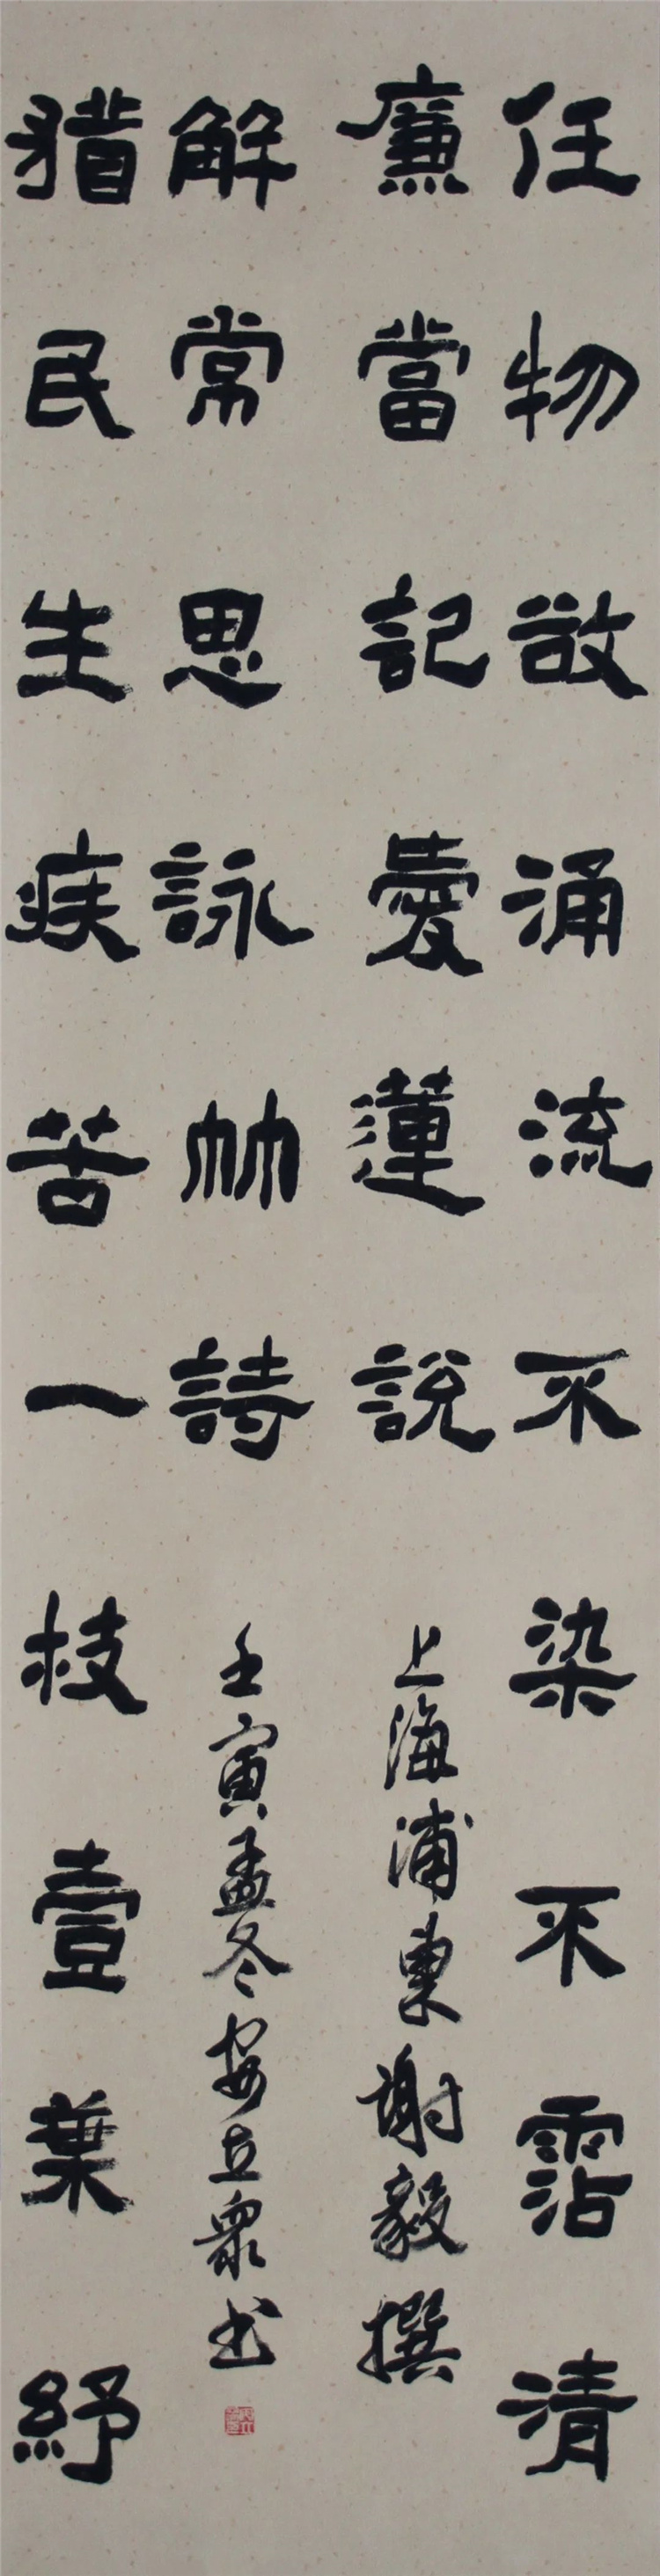 任物欲涌流不染不霑清
廉當記愛蓮說
上海浦東謝毅撰
猎民生疾苦一枝壹葉紓
解常思詠竹詩
壬寅孟冬安立眾书